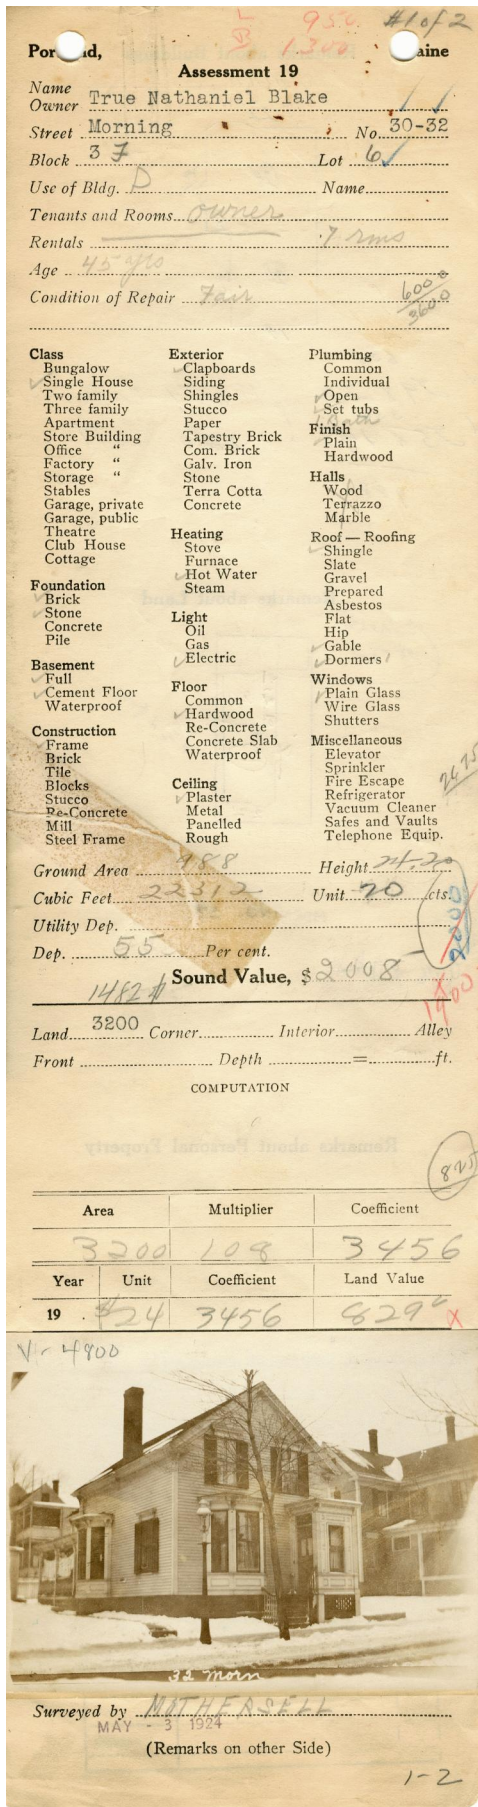 L 950
B 1300
#1 of 2
Portland, Maine
Assessment 19
Name
Owner True Nathaniel Blake
Street Morning No. 30-32
Block 3 F Lot 6
Use of Bldg. D Name
Tenants and Rooms owner
Rentals 7 rms
Age 45 yrs
Condition of Repair Fair
6000
3600
Class
Bungalow
Single House
Two family
Three family
Apartment
Store Building
Office "
Factory "
Storage "
Stables
Garage, private
Garage, public
Theatre
Club House
Cottage
Foundation
Brick
Stone
Concrete
Pile
Basement
Full
Cement Floor
Waterproof
Construction
Frame
Brick
Tile
Blocks
Stucco
Re-Concrete
Mill
Steel Frame
Exterior
Clapboards
Siding
Shingles
Stucco
Paper
Tapestry Brick
Com. Brick
Galv. Iron
Stone
Terra Cotta
Concrete
Heating
Stove
Furnace
Hot Water
Steam
Light
Oil
Gas
Electric
Floor
Common
Hardwood
Re-Concrete
Concrete Slab
Waterproof
Ceiling
Plaster
Metal
Panelled
Rough
Plumbing
Common
Individual
Open
Set tubs
1 Bath
Finish
Plain
Hardwood
Halls
Wood
Terrazzo
Marble
Roof — Roofing
Shingle
Slate
Gravel
Prepared
Asbestos
Flat
Hip
Gable
Dormers 1
Windows
Plain Glass
Wire Glass
Shutters
Miscellaneous
Elevator
Sprinkler
Fire Escape
Refrigerator
Vacuum Cleaner
Safes and Vaults
Telephone Equip.
2675
Ground Area 988 Height 24.20
Cubic Feet 22312 Unit 20 cts.
Utility Dep.
2000
Dep. 55 Per cent.
Sound Value, $2008
1482 #
X
1400
Land 3200 Corner Interior Alley
Front Depth = ft.
COMPUTATION
825
Area Multiplier Coefficient
3200 108 3456
Year Unit Coefficient Land Value
19 $24 3456 829 X
V- 4800
32 Morn
Surveyed by MOTHERSELL
MAY - 3 1924
(Remarks on other Side)
1-2